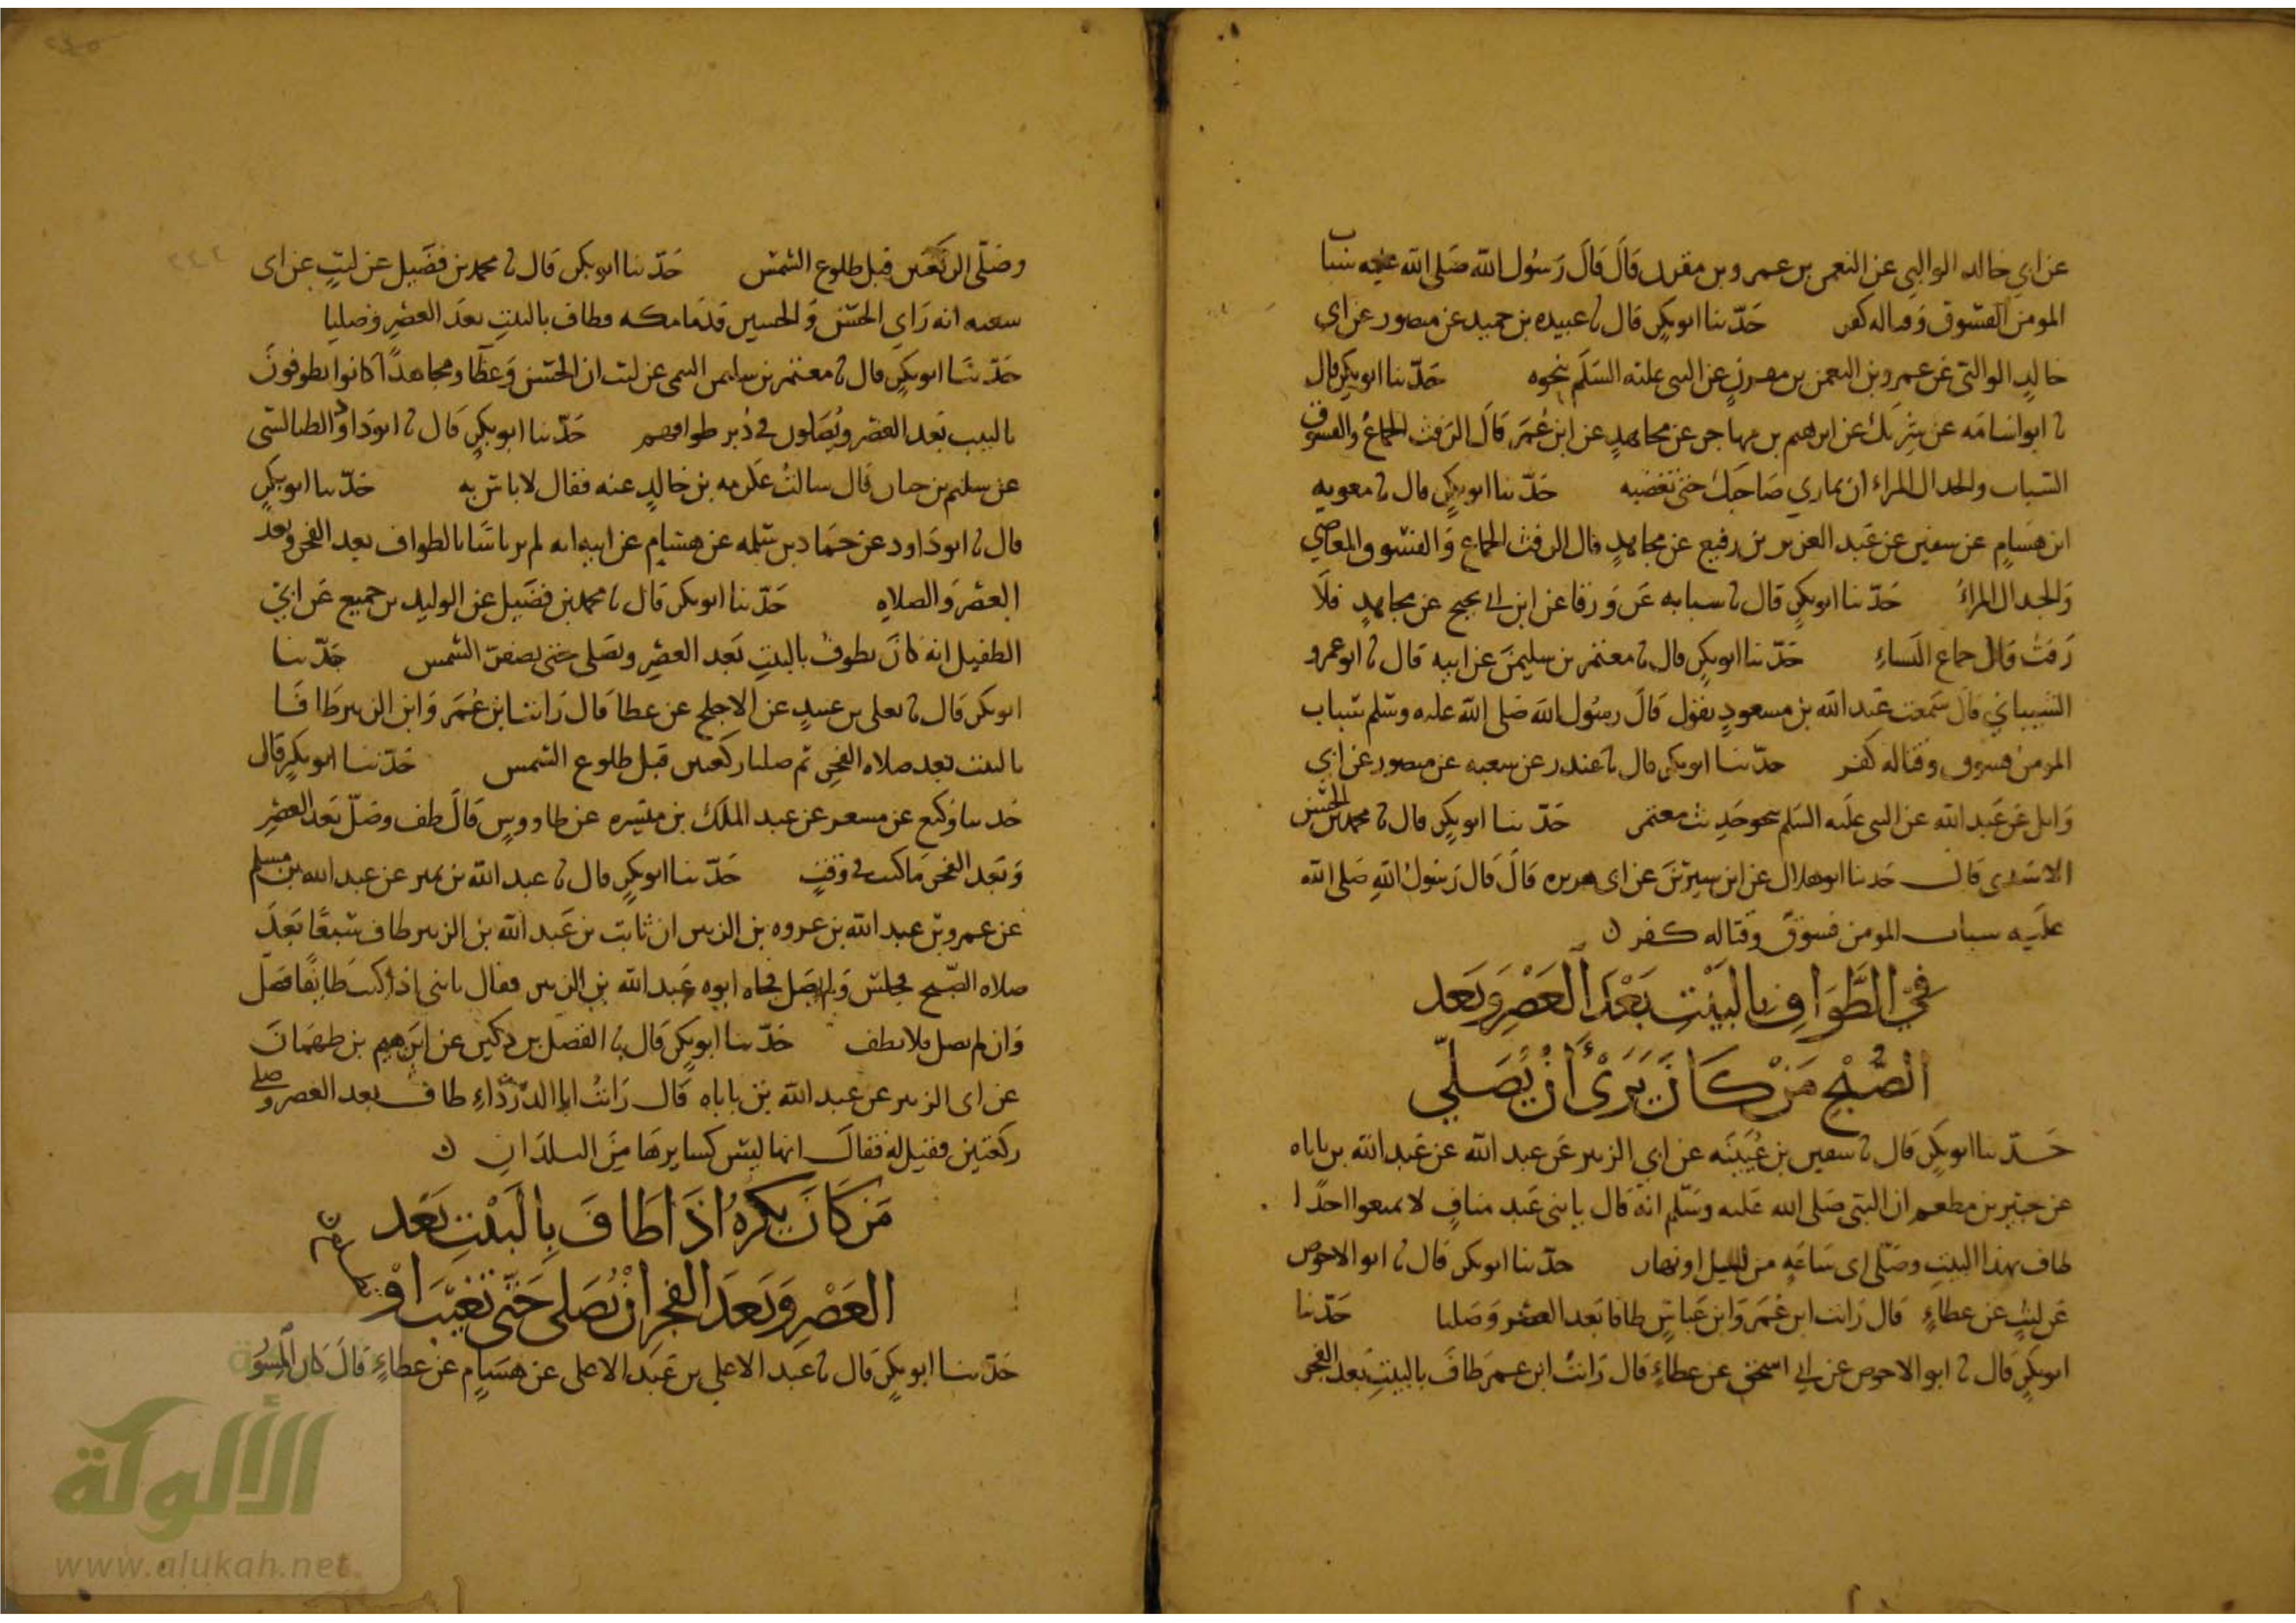 عن ابي خالد الوالبي عن النعمن بن عمرو بن مقرن قال قال رسول الله صلى الله عليه سباب
المومن الفسوق وقتاله كفر حدثنا ابو بكر قال نا عبيده بن حميد عن منصور عن ابي
خالد الوالبي عن عمرو بن النعمن بن مقرن عن النبي عليه السلم بنحوه حدثنا ابو بكر قال
نا ابو اسامه عن شريك عن ابرهيم بن مهاجر عن مجاهد عن ابن عمر قال الرفث الجماع والفسوق
السباب والجدال المراء ان تماري صاحبك حتى تغضبه حدثنا ابو بكر قال نا معويه
ابن هشام عن سفين عن عبد العزيز بن رفيع عن مجاهد قال الرفث الجماع والفسوق المعاصي
والجدال المراء حدثنا ابو بكر قال نا شبابه عن ورقا عن ابن ابي نجيح عن مجاهد فلا
رفث قال جماع النساء حدثنا ابو بكر قال نا معتمر بن سليمن عن ابيه قال نا ابو عمرو
الشيباني قال سمعت عبد الله بن مسعود يقول قال رسول الله صلى الله عليه وسلم سباب
المومن فسوق وقتاله كفر حدثنا ابو بكر قال نا غندر عن شعبه عن منصور عن ابي
وايل عن عبد الله عن النبي عليه السلم نحو حديث معتمر حدثنا ابو بكر قال نا محمد بن الحسن
الاسدي قال حدثنا ابو هلال عن ابن سيرين عن ابي هريره قال قال رسول الله صلى الله
عليه سباب المومن فسوق وقتاله كفر
في الطواف بالبيت بعد العصر وبعد
الصبح من كان يرى ان يصلي
حدثنا ابو بكر قال نا سفين بن عيينه عن ابي الزبير عن عبد الله عن عبد الله بن باباه
عن جبير بن مطعم ان النبي صلى الله عليه وسلم انه قال يا بني عبد مناف لا تمنعوا احدا
طاف بهذا البيت وصلى اي ساعه من الليل او نهار حدثنا ابو بكر قال نا ابو الاحوص
عن ليث عن عطاء قال رايت ابن عمر وابن عباس طافا بعد العصر وصليا حدثنا
ابو بكر قال نا ابو الاحوص عن ابي اسحق عن عطاء قال رايت ابن عمر طاف بالبيت بعد الفجر
وصلى الركعتين قبل طلوع الشمس حدثنا ابو بكر قال نا محمد بن فضيل عن ليث عن ابي
سعيد انه راى الحسن والحسين قدما مكه فطاف بالبيت بعد العصر وصليا
حدثنا ابو بكر قال نا معتمر بن سليمن التيمي عن ليث ان الحسن وعطا ومجاهدا كانوا يطوفون
بالبيت بعد العصر ويصلون في دبر طوافهم حدثنا ابو بكر قال نا ابو داود الطيالسي
عن سليم بن حيان قال سالت عكرمه بن خالد عنه فقال لا باس به حدثنا ابو بكر
قال نا ابو داود عن حماد بن سلمه عن هشام عن ابيه انه لم ير باسا بالطواف بعد الفجر وبعد
العصر والصلاه حدثنا ابو بكر قال نا محمد بن فضيل عن الوليد بن جميع عن ابي
الطفيل انه كان يطوف بالبيت بعد العصر ويصلي حتى تصفر الشمس حدثنا
ابو بكر قال نا يعلى بن عبيد عن الاجلح عن عطا قال رايت ابن عمر وابن الزبير طافا
بالبيت بعد صلاه الفجر ثم صليا ركعتين قبل طلوع الشمس حدثنا ابو بكر قال
حدثنا وكيع عن مسعر عن عبد الملك بن ميسره عن طاووس قال طف وصل بعد العصر
وبعد الفجر ما كنت في وقت حدثنا ابو بكر قال نا عبد الله بن نمير عن عبد الله بن مسلم
عن عمرو بن عبد الله بن عروه بن الزبير ان ثابت بن عبد الله بن الزبير طاف سبعا بعد
صلاه الصبح فجلس ولم يصل فجاه ابوه عبد الله بن الزبير فقال يا بني اذا كنت طايفا فصل
وان لم تصل فلا تطف حدثنا ابو بكر قال نا الفضل بن دكين عن ابرهيم بن طهمان
عن ابي الزبير عن عبد الله بن باباه قال رايت ابا الدرداء طاف بعد العصر وصلى
ركعتين فقيل له فقال انها ليس كسايرها من البلدان
من كان يكره اذا طاف بالبيت بعد
العصر وبعد الفجر ان يصلي حتى تغيب او
حدثنا ابو بكر قال نا عبد الاعلى بن عبد الاعلى عن هشام عن عطاء قال كان المسور
الألوكة
www.alukah.net